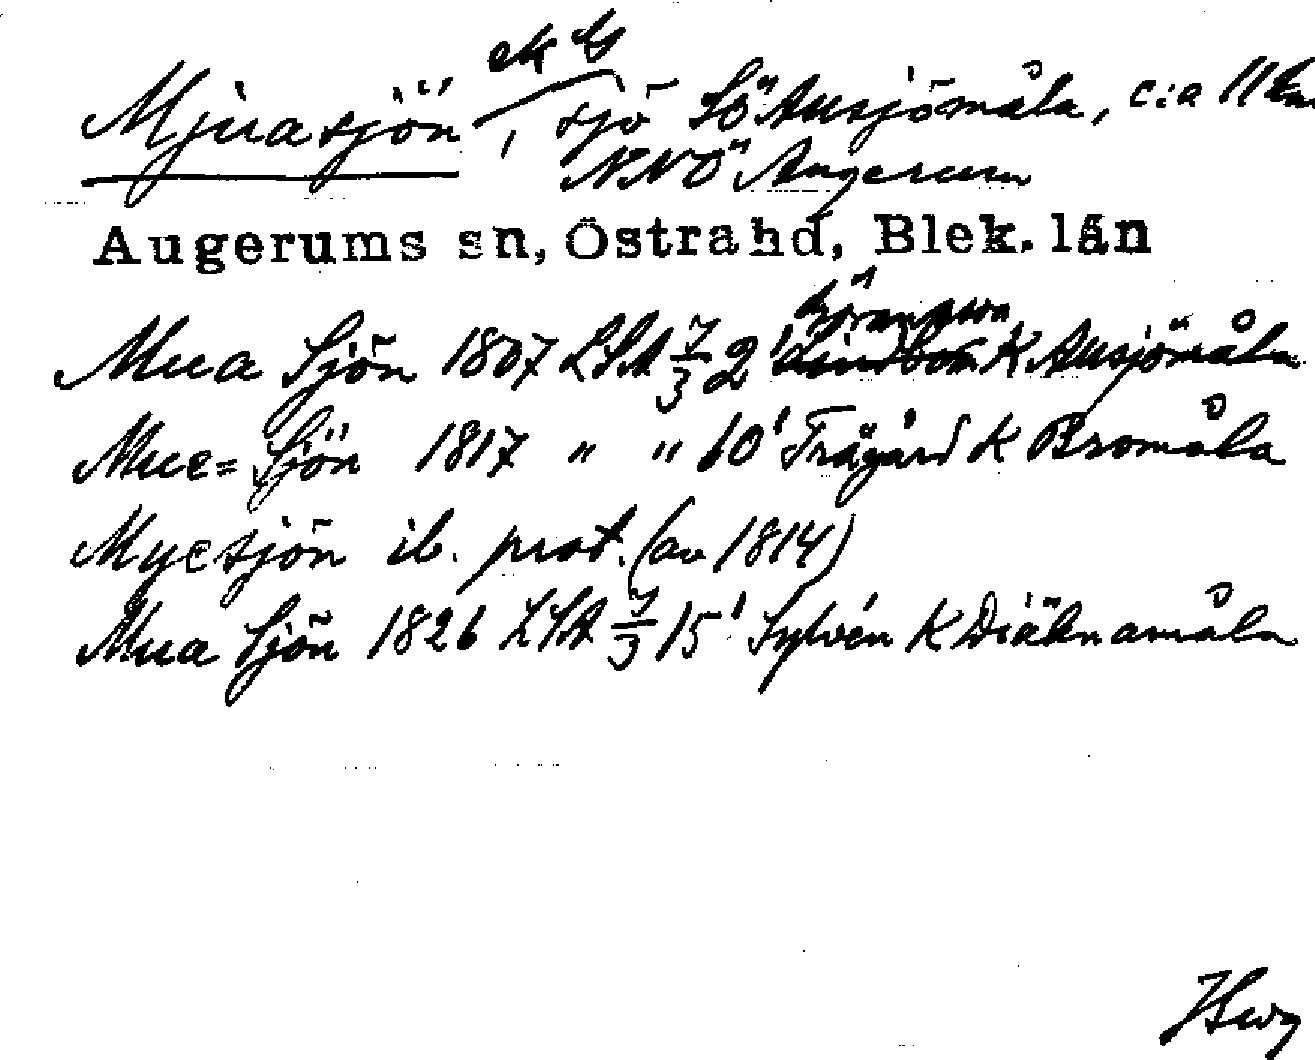 Mjuasjön, sjö SÖ Ausjömåla, c:a 11 km
NNÖ Augerum
Augerums sn, Östra hd, Blek. län
Göransson
Mua Sjön 1807 LSA 7/3 2' K Ausjömåla
Mue= Sjön 1817 " " 10' Trägård K Bromåla
Myesjön ib. prot. (av 1814)
Mua Sjön 1826 LSA 7/3 15' Sylvén K Diäknamåla